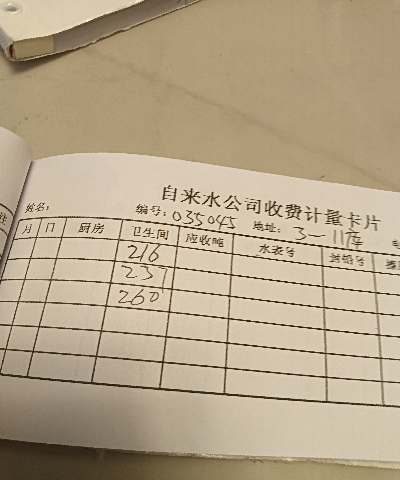 自来水公司收费计量卡片
姓名: 编号: 035045 地址: 3-11库
月 日 厨房 卫生间 应收吨 水表号 封铅号
216
237
260